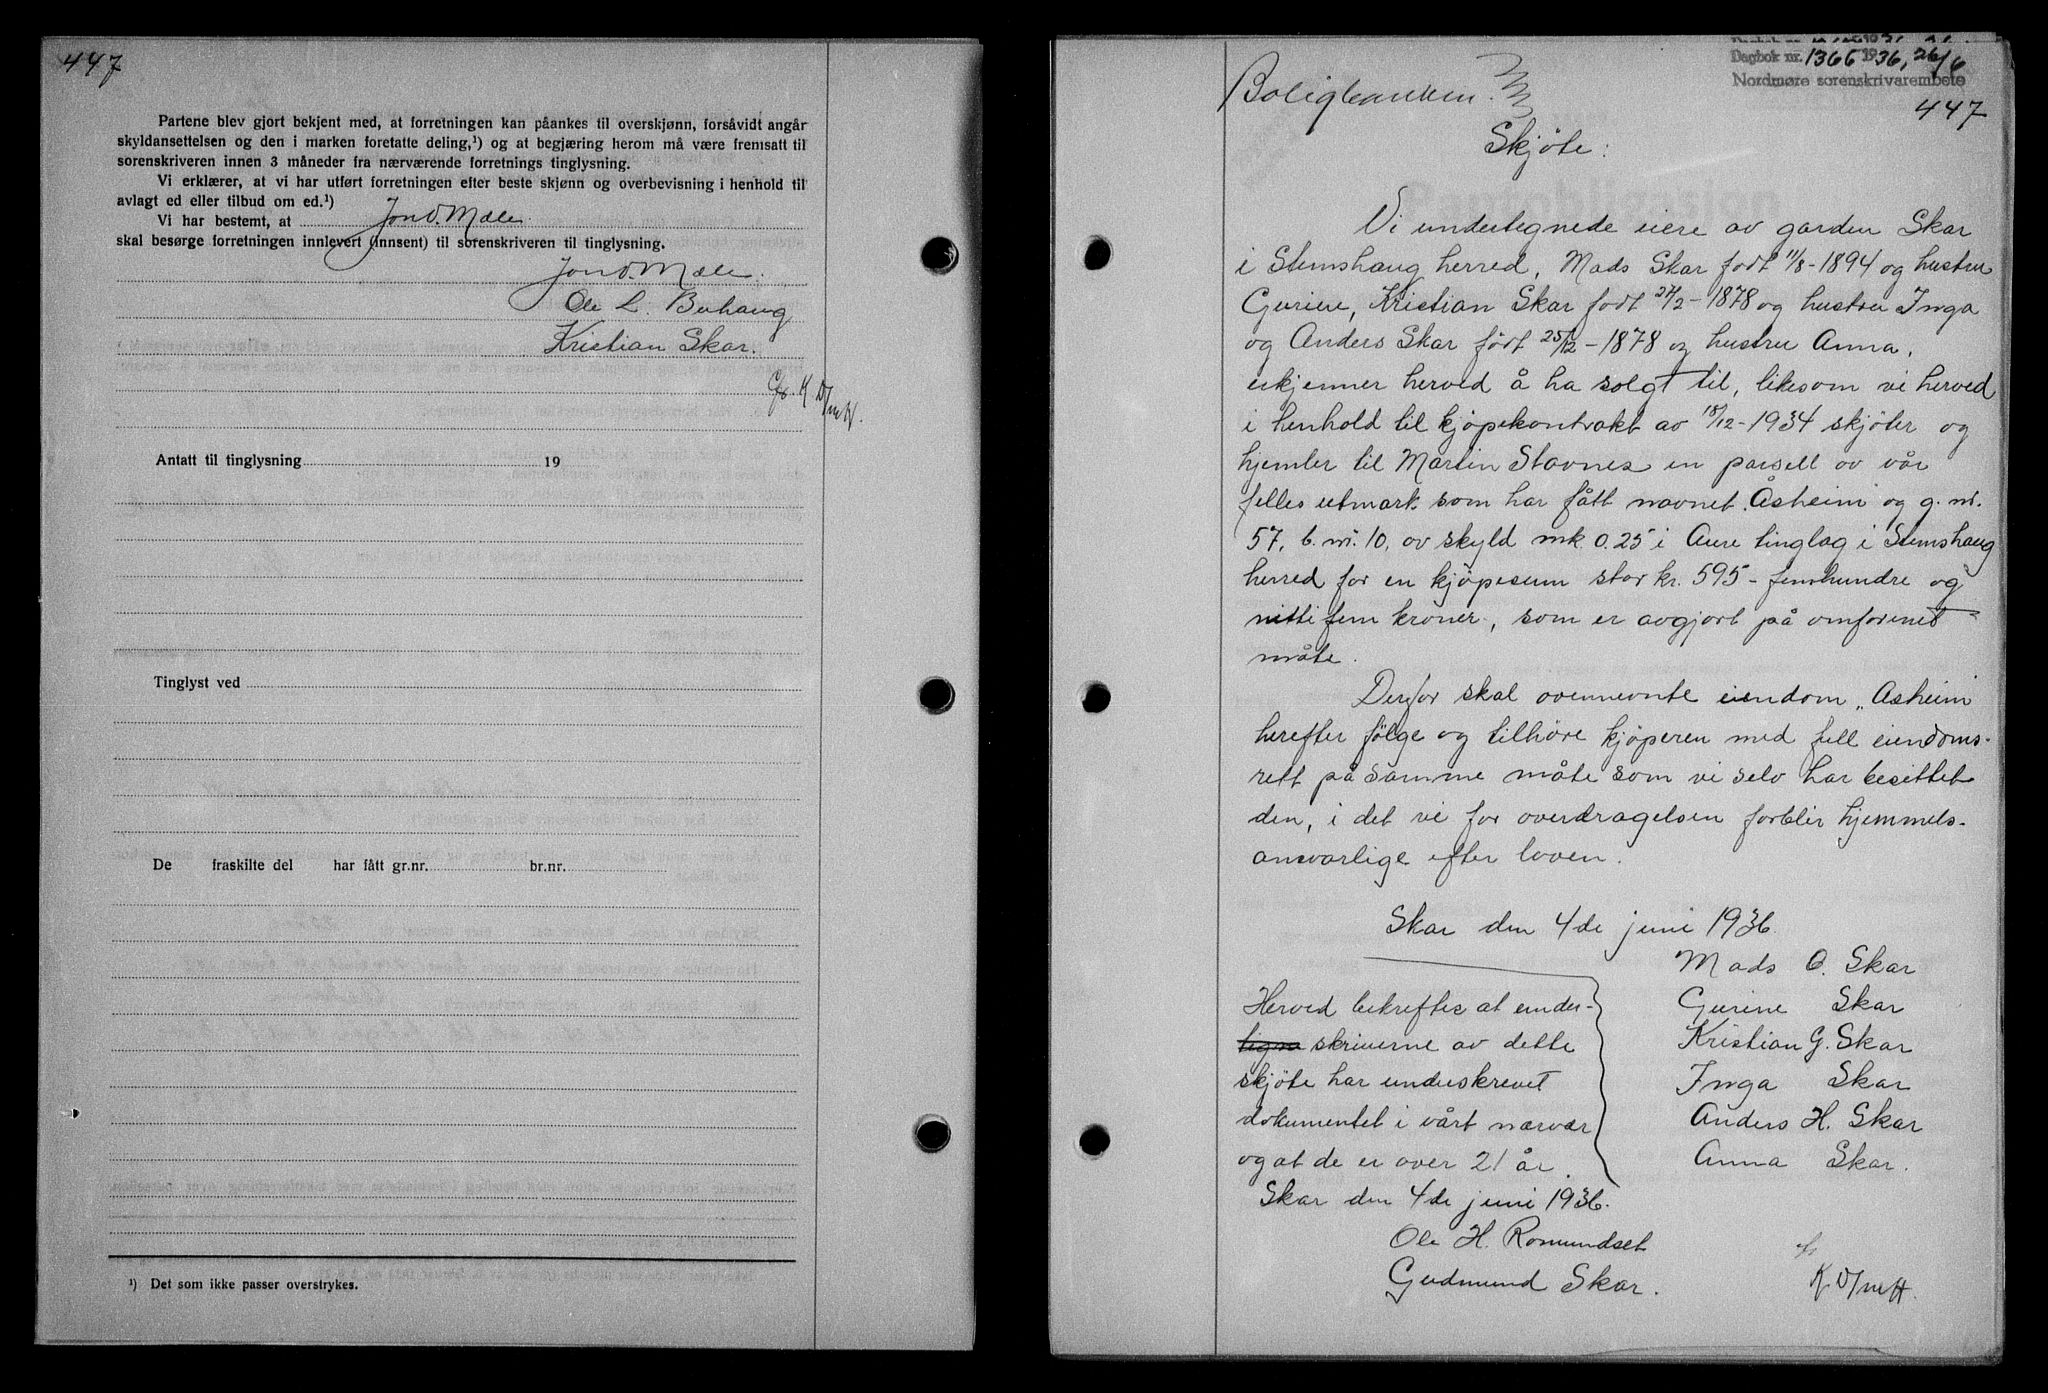 447
Partene blev gjort bekjent med, at forretningen kan påankes til overskjønn, forsåvidt angår
skyldansettelsen og den i marken foretatte deling,¹) og at begjæring herom må være fremsatt til
sorenskriveren innen 3 måneder fra nærværende forretnings tinglysning.
Vi erklærer, at vi har utført forretningen efter beste skjønn og overbevisning i henhold til
avlagt ed eller tilbud om ed.¹)
Vi har bestemt, at Jon O. Mæle
skal besørge forretningen innlevert (innsent) til sorenskriveren til tinglysning.
Jon O. Mæle.
Ole L. Buhaug
Kristian Skar.
Antatt til tinglysning 19
Tinglyst ved
De fraskilte del har fått gr.nr. br.nr.
¹) Det som ikke passer overstrykes.
Dagbok nr. 1366 1936, 26/6
Nordmøre sorenskrivarembete
447
Boligbanken.
Skjøte:
Vi undertegnede eiere av garden Skar
i Stemshaug herred, Mads Skar født 11/8-1894 og hustru
Gurine, Kristian Skar født 27/2-1878 og hustru Inga
og Anders Skar født 25/12-1878 og hustru Anna,
erkjenner herved å ha solgt til, likesom vi herved
i henhold til kjøpekontrakt av 18/12-1934 skjøter og
hjemler til Martin Stavnes en parsell av vår
felles utmark som har fått navnet "Åsheim" og g. nr.
57, b. nr. 10, av skyld mk. 0.25 i Aure tinglag i Stemshaug
herred for en kjøpesum stor kr. 595- femhundre og
nittifem kroner, som er avgjort på omforenet
måte.
Derfor skal ovennevnte eiendom "Åsheim"
herefter følge og tilhøre kjøperen med full eiendoms-
rett på samme måte som vi selv har besittet
den, i det vi for overdragelsen forblir hjemmels-
ansvarlige efter loven.
Skar den 4de juni 1936.
Mads O. Skar
Gurine Skar
Kristian G. Skar
Inga Skar
Anders H. Skar
Anna Skar.
Herved bekreftes at under-
tegne skriverne av dette
skjøte har underskrevet
dokumentet i vårt nærvær
og at de er over 21 år.
Skar den 4de juni 1936.
Ole H. Romundset
Gudmund Skar.